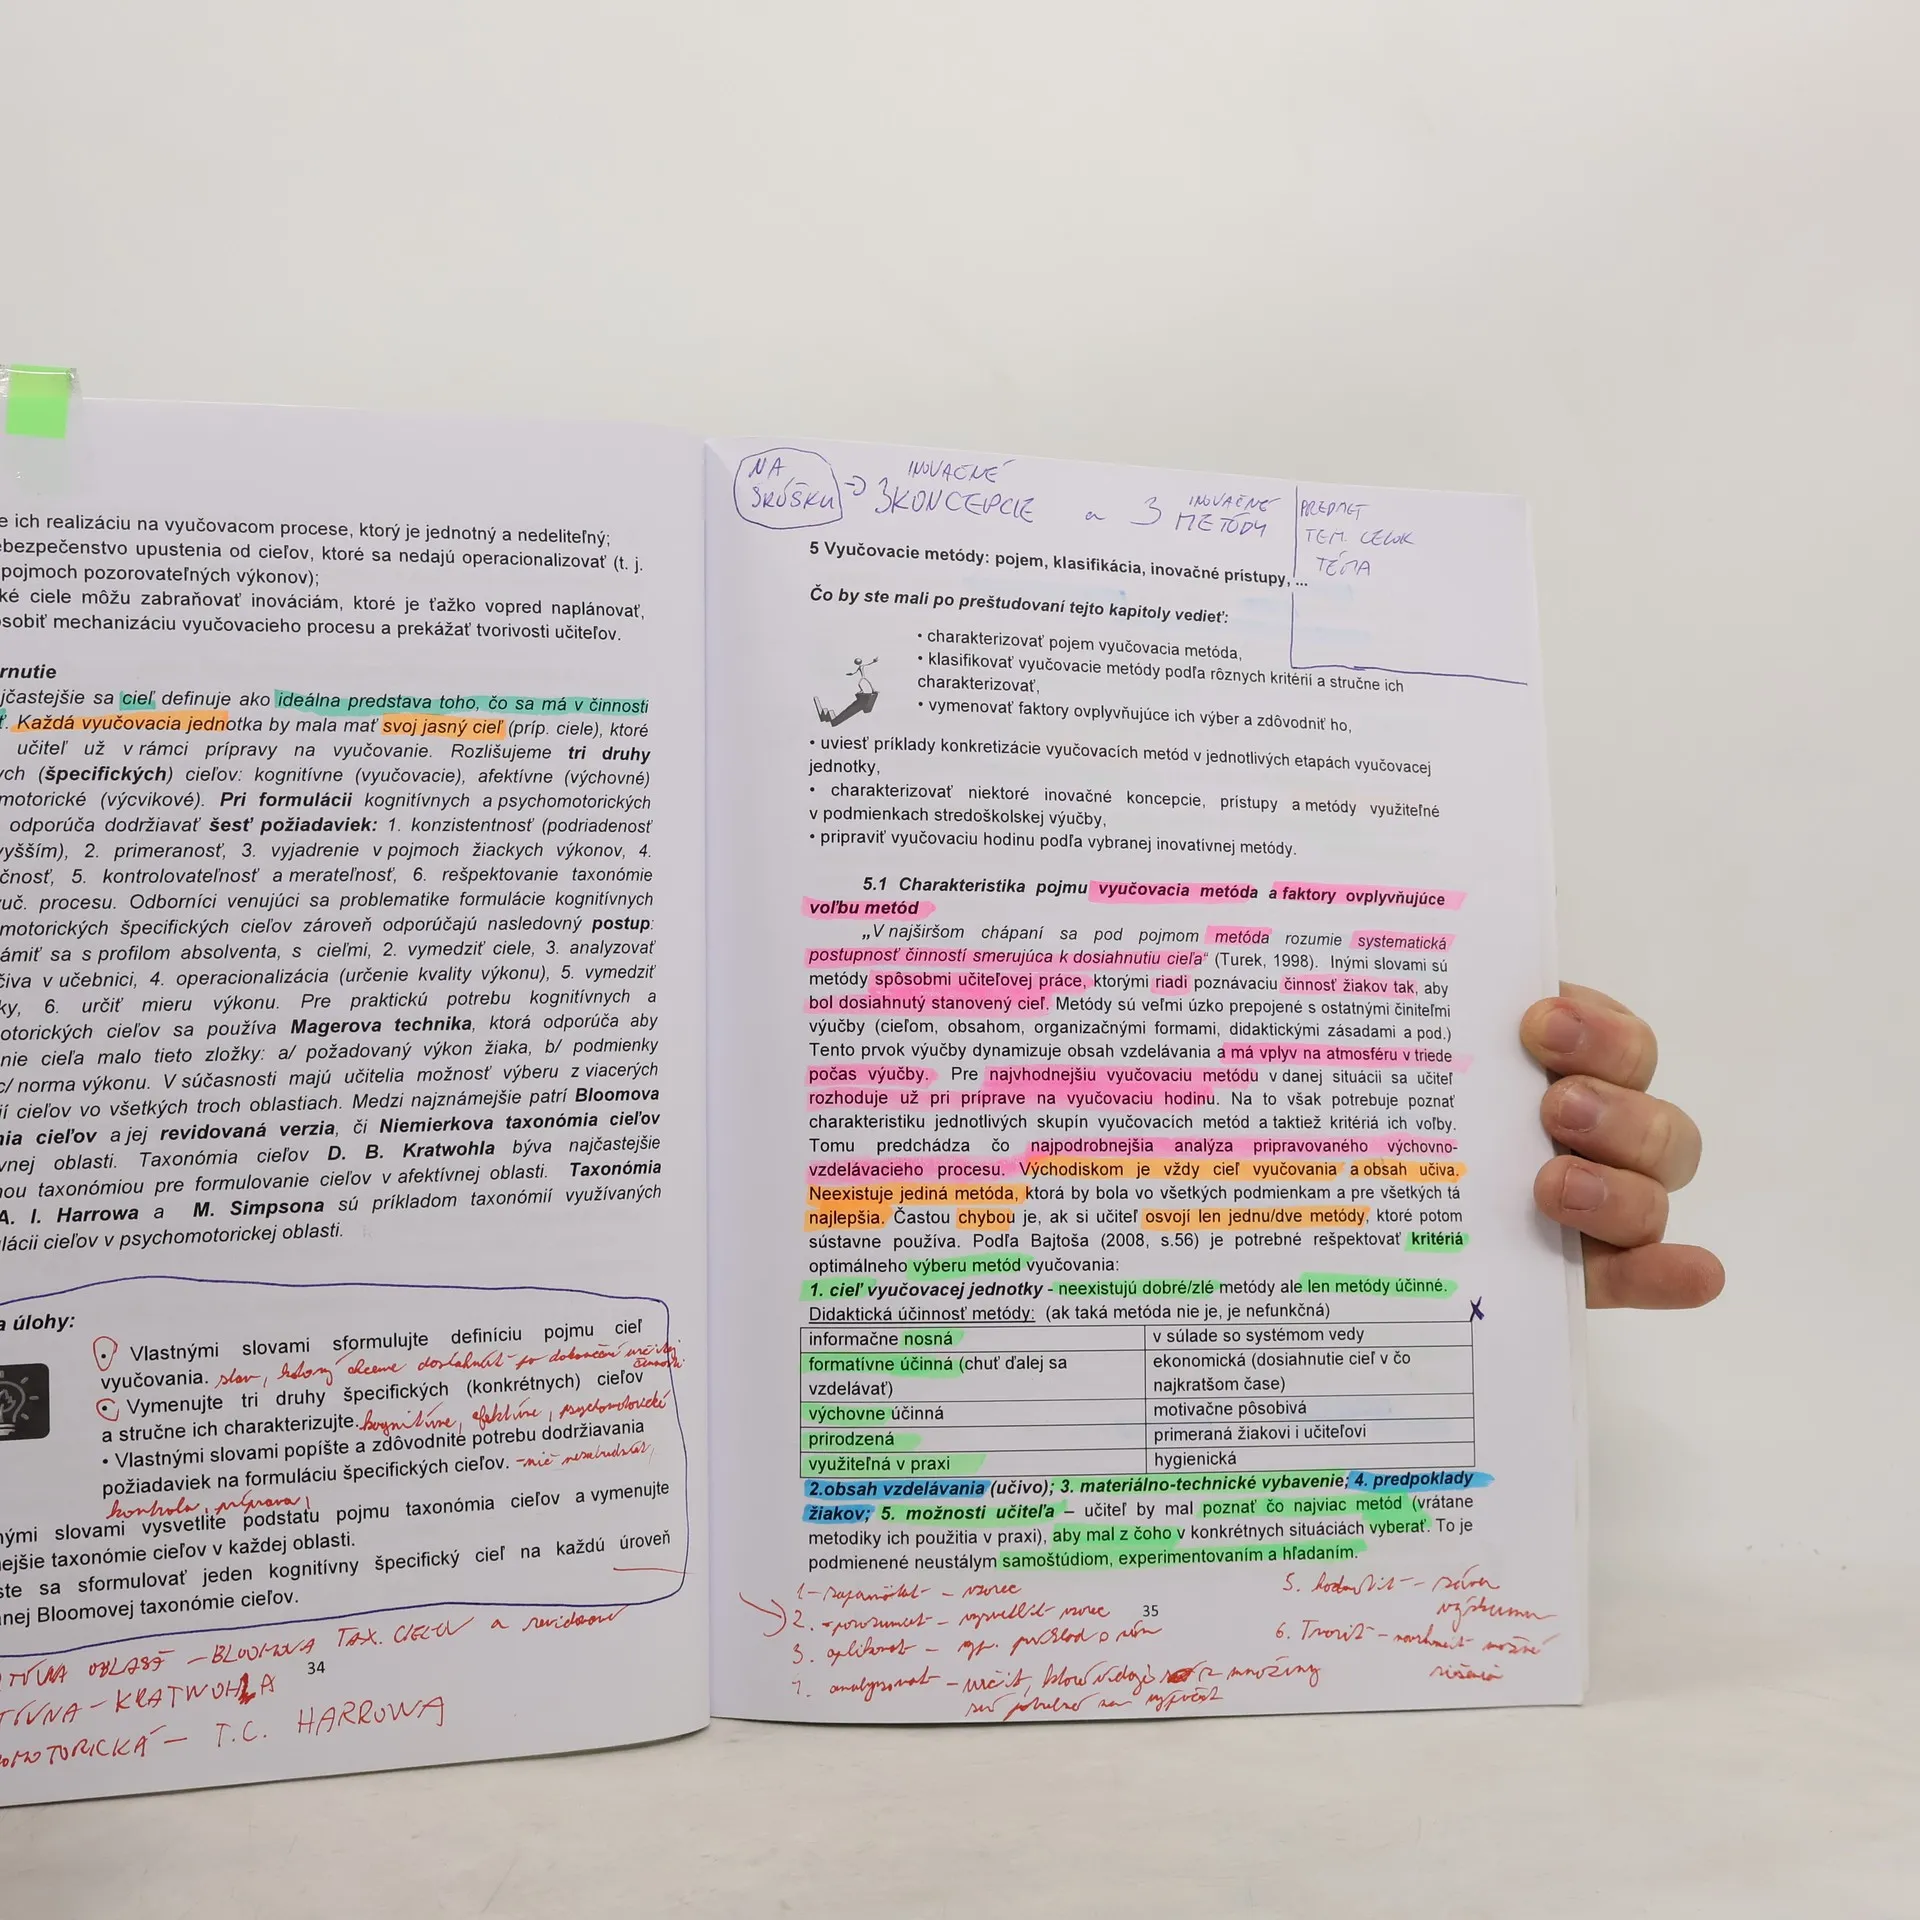 e ich realizáciu na vyučovacom procese, ktorý je jednotný a nedeliteľný;
ebezpečenstvo upustenia od cieľov, ktoré sa nedajú operacionalizovať (t. j.
pojmoch pozorovateľných výkonov);
ké ciele môžu zabraňovať inováciám, ktoré je ťažko vopred naplánovať,
sobiť mechanizáciu vyučovacieho procesu a prekážať tvorivosti učiteľov.
rnutie
jčastejšie sa cieľ definuje ako ideálna predstava toho, čo sa má v činnosti
ť. Každá vyučovacia jednotka by mala mať svoj jasný cieľ (príp. ciele), ktoré
učiteľ už v rámci prípravy na vyučovanie. Rozlišujeme tri druhy
ych (špecifických) cieľov: kognitívne (vyučovacie), afektívne (výchovné)
motorické (výcvikové). Pri formulácii kognitívnych a psychomotorických
odporúča dodržiavať šesť požiadaviek: 1. konzistentnosť (podriadenosť
vyšším), 2. primeranosť, 3. vyjadrenie v pojmoch žiackych výkonov, 4.
čnosť, 5. kontrolovateľnosť a merateľnosť, 6. rešpektovanie taxonómie
uč. procesu. Odborníci venujúci sa problematike formulácie kognitívnych
motorických špecifických cieľov zároveň odporúčajú nasledovný postup:
ámiť sa s profilom absolventa, s cieľmi, 2. vymedziť ciele, 3. analyzovať
čiva v učebnici, 4. operacionalizácia (určenie kvality výkonu), 5. vymedziť
ky, 6. určiť mieru výkonu. Pre praktickú potrebu kognitívnych a
otorických cieľov sa používa Magerova technika, ktorá odporúča aby
nie cieľa malo tieto zložky: a/ požadovaný výkon žiaka, b/ podmienky
c/ norma výkonu. V súčasnosti majú učitelia možnosť výberu z viacerých
ií cieľov vo všetkých troch oblastiach. Medzi najznámejšie patrí Bloomova
nia cieľov a jej revidovaná verzia, či Niemierkova taxonómia cieľov
vnej oblasti. Taxonómia cieľov D. B. Kratwohla býva najčastejšie
nou taxonómiou pre formulovanie cieľov v afektívnej oblasti. Taxonómia
A. I. Harrowa a M. Simpsona sú príkladom taxonómií využívaných
lácii cieľov v psychomotorickej oblasti.
a úlohy:
• Vlastnými slovami sformulujte definíciu pojmu cieľ
vyučovania. stav, ktorý chceme dosiahnuť po dokončení určitej činnosti
• Vymenujte tri druhy špecifických (konkrétnych) cieľov
a stručne ich charakterizujte. kognitívne, afektívne, psychomotorické
• Vlastnými slovami popíšte a zdôvodnite potrebu dodržiavania
požiadaviek na formuláciu špecifických cieľov. - nič nezabudnúť,
kontrola, príprava
nými slovami vysvetlite podstatu pojmu taxonómia cieľov a vymenujte
nejšie taxonómie cieľov v každej oblasti.
ste sa sformulovať jeden kognitívny špecifický cieľ na každú úroveň
anej Bloomovej taxonómie cieľov.
TÍVNA OBLASŤ – BLOOMOVA TAX. CIEĽOV a revidovaná
TÍVNA – KRATWOHLA
OMOTORICKÁ – T.C. HARROWA
34
NA SKÚŠKU → 3 INOVAČNÉ KONCEPCIE a 3 INOVAČNÉ METÓDY
PREDMET
TEM. CELOK
TÉMA
5 Vyučovacie metódy: pojem, klasifikácia, inovačné prístupy, ...
Čo by ste mali po preštudovaní tejto kapitoly vedieť:
• charakterizovať pojem vyučovacia metóda,
• klasifikovať vyučovacie metódy podľa rôznych kritérií a stručne ich
charakterizovať,
• vymenovať faktory ovplyvňujúce ich výber a zdôvodniť ho,
• uviesť príklady konkretizácie vyučovacích metód v jednotlivých etapách vyučovacej
jednotky,
• charakterizovať niektoré inovačné koncepcie, prístupy a metódy využiteľné
v podmienkach stredoškolskej výučby,
• pripraviť vyučovaciu hodinu podľa vybranej inovatívnej metódy.
5.1 Charakteristika pojmu vyučovacia metóda a faktory ovplyvňujúce
voľbu metód
„V najširšom chápaní sa pod pojmom metóda rozumie systematická
postupnosť činností smerujúca k dosiahnutiu cieľa“ (Turek, 1998). Inými slovami sú
metódy spôsobmi učiteľovej práce, ktorými riadi poznávaciu činnosť žiakov tak, aby
bol dosiahnutý stanovený cieľ. Metódy sú veľmi úzko prepojené s ostatnými činiteľmi
výučby (cieľom, obsahom, organizačnými formami, didaktickými zásadami a pod.)
Tento prvok výučby dynamizuje obsah vzdelávania a má vplyv na atmosféru v triede
počas výučby. Pre najvhodnejšiu vyučovaciu metódu v danej situácii sa učiteľ
rozhoduje už pri príprave na vyučovaciu hodinu. Na to však potrebuje poznať
charakteristiku jednotlivých skupín vyučovacích metód a taktiež kritériá ich voľby.
Tomu predchádza čo najpodrobnejšia analýza pripravovaného výchovno-
vzdelávacieho procesu. Východiskom je vždy cieľ vyučovania a obsah učiva.
Neexistuje jediná metóda, ktorá by bola vo všetkých podmienkam a pre všetkých tá
najlepšia. Častou chybou je, ak si učiteľ osvojí len jednu/dve metódy, ktoré potom
sústavne používa. Podľa Bajtoša (2008, s.56) je potrebné rešpektovať kritériá
optimálneho výberu metód vyučovania:
1. cieľ vyučovacej jednotky - neexistujú dobré/zlé metódy ale len metódy účinné.
Didaktická účinnosť metódy: (ak taká metóda nie je, je nefunkčná) X
informačne nosná v súlade so systémom vedy
formatívne účinná (chuť ďalej sa vzdelávať) ekonomická (dosiahnutie cieľ v čo najkratšom čase)
výchovne účinná motivačne pôsobivá
prirodzená primeraná žiakovi i učiteľovi
využiteľná v praxi hygienická
2.obsah vzdelávania (učivo); 3. materiálno-technické vybavenie; 4. predpoklady
žiakov; 5. možnosti učiteľa – učiteľ by mal poznať čo najviac metód (vrátane
metodiky ich použitia v praxi), aby mal z čoho v konkrétnych situáciách vyberať. To je
podmienené neustálym samoštúdiom, experimentovaním a hľadaním.
1 – zapamätať – vzorec
2. – porozumieť – vysvetliť vzorec
3. aplikovať – príklad
4. analyzovať – určiť, ktoré z množiny
sú potrebné na výpočet
5. hodnotiť –
6. Tvoriť – navrhnúť možné
riešenia
35